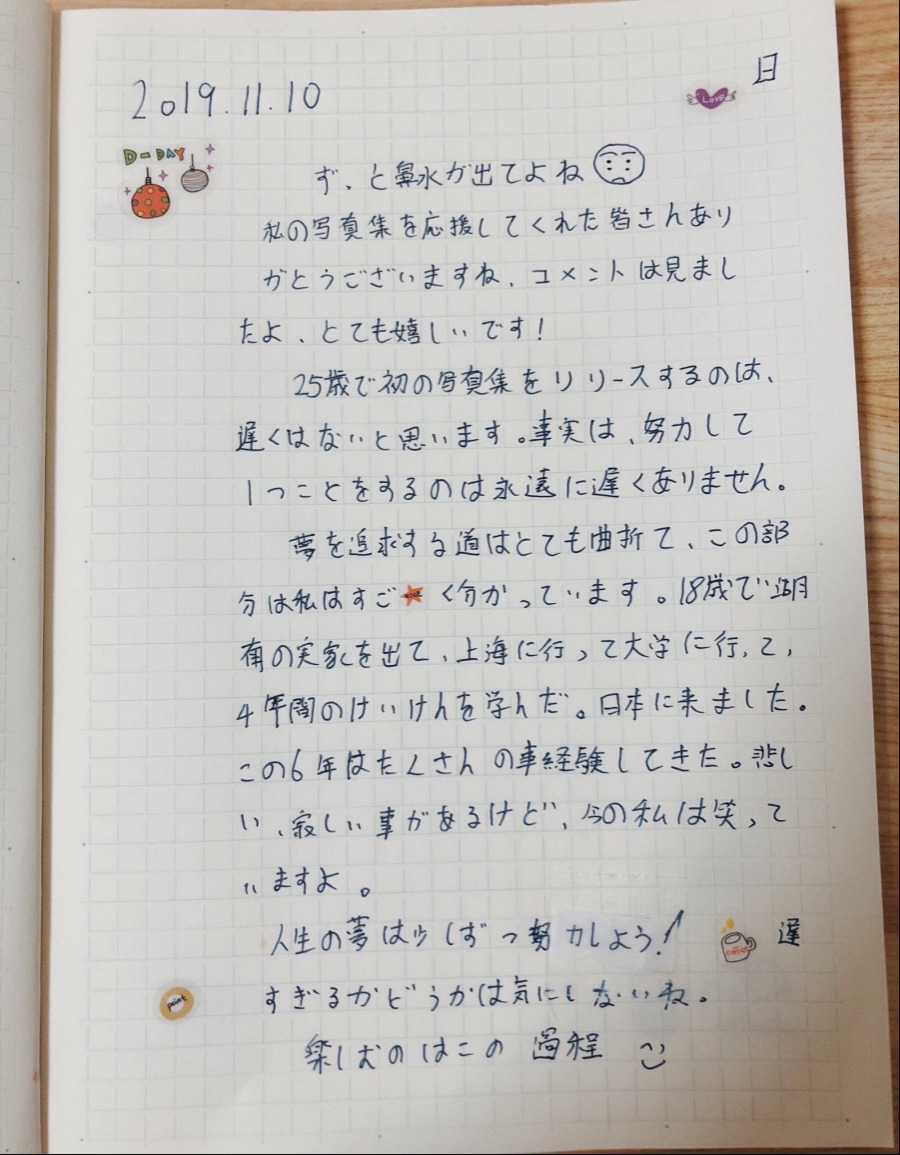 2019.11.10
日
LOVE
D-DAY
ず、と鼻水が出てよね
私の写真集を応援してくれた皆さんあり
がとうございますね、コメントは見まし
たよ、とても嬉しいです！
25歳で初の写真集をリリースするのは、
遅くはないと思います。事実は、努力して
1つことをするのは永遠に遅くありません。
夢を追求する道はとても曲折て、この部
分は私はすごく分かっています。18歳で湖
南の実家を出て、上海に行って大学に行、て、
4年間のけいけんを学んだ。日本に来ました。
この6年はたくさんの事経験してきた。悲し
い、寂しい事があるけど、今の私は笑って
いますよ。
人生の夢は少しずつ努力しよう！
coffee
遅
すぎるかどうかは気にしないね。
point
楽しむのはこの過程